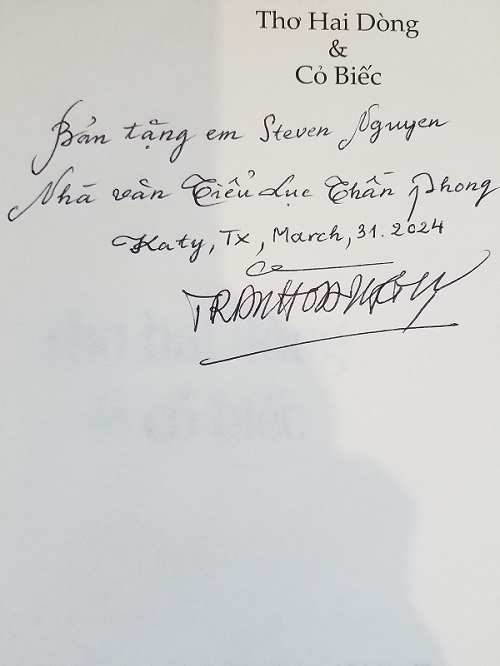 Thơ Hai Dòng
&
Cỏ Biếc
Bản tặng em Steven Nguyen
Nhà văn Tiểu Lục Thần Phong
Katy, Tx, March, 31. 2024
thơ hai dòng
& cỏ biếc